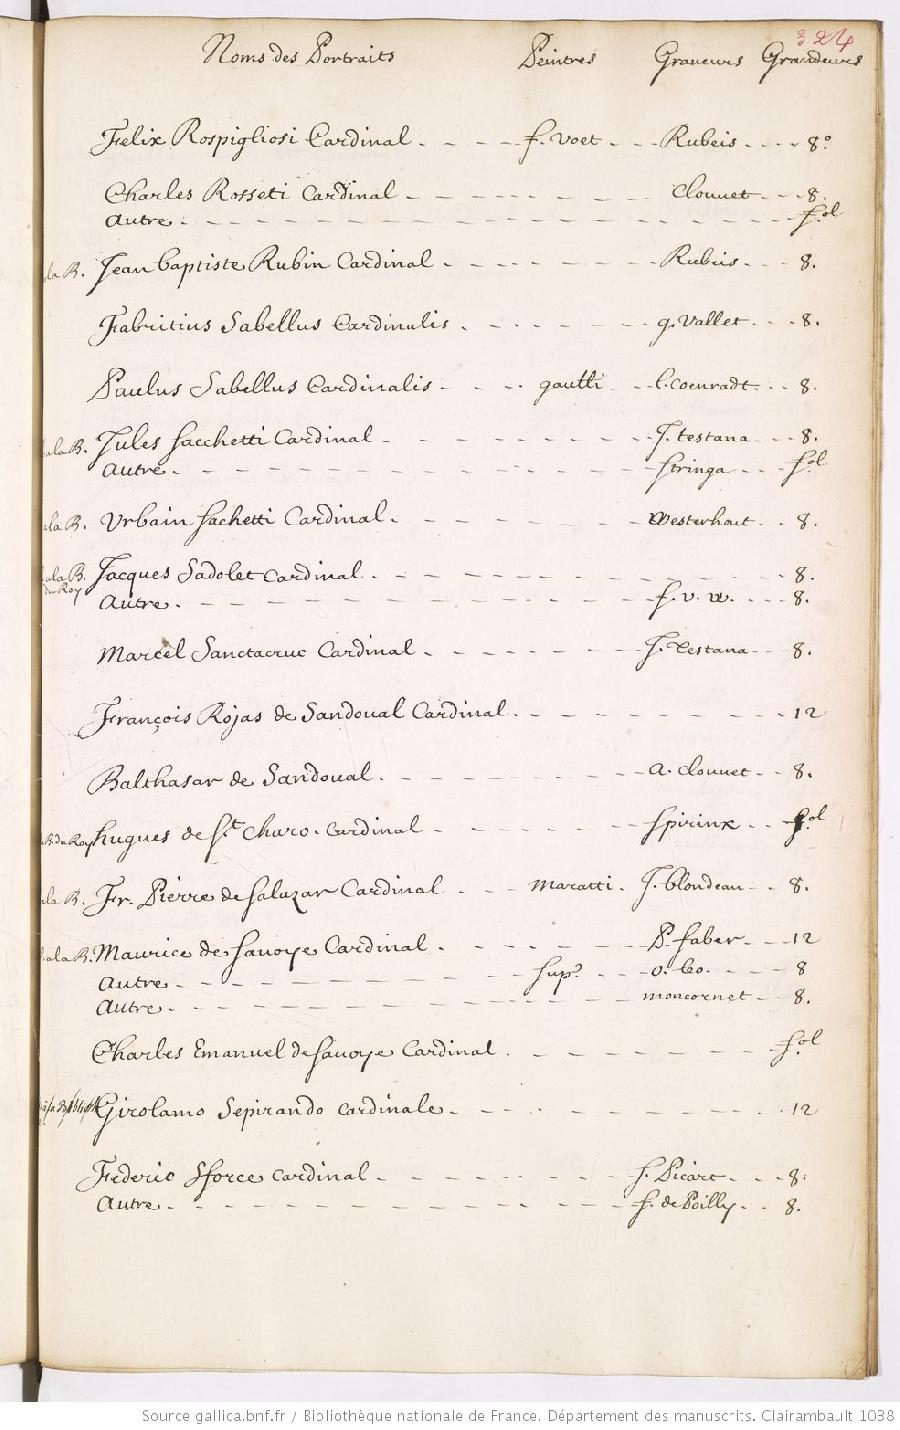 324
Noms des Portraits Peintres Graveurs Grandeurs
Felix Rospigliosi Cardinal. f. Voet Rubeis 8.°
Charles Rosseti Cardinal Clouuet 8.
Autre fol
ala B. Jean baptiste Rubin Cardinal Rubeis 8.
Fabritius Sabellus Cardinalis. g. Vallet 8.
Paulus Sabellus Cardinalis gaulli l. Coenradt 8.
ala B. Jules Sacchetti Cardinal J. testana 8.
Autre. Stringa fol
ala B. Urbain Sachetti Cardinal. Westerhout 8.
ala B. Jacques Sadolet Cardinal. 8.
du Roy Autre. f. v. w. 8.
Marcel Sanctacruc Cardinal J. Testana 8.
François Rojas de Sandoual Cardinal. 12
Balthasar de Sandoual. A. Clouuet 8.
B. du Roy hugues de St. Charo. Cardinal Spirinx fol
ala B. Fr. Pierre de Salazar Cardinal Maratti. J. blondeau 8.
ala B. Maurice de Savoye Cardinal. P. faber 12
Autre Sup. 8
Autre moncornet 8.
Charles Emanuel de Savoye Cardinal. fol
Girolamo Sepirando Cardinale 12
Federic Sforce Cardinal S. Picart 8.
Autre f. de Poilly 8.
Source gallica.bnf.fr / Bibliothèque nationale de France. Département des manuscrits. Clairambault 1038